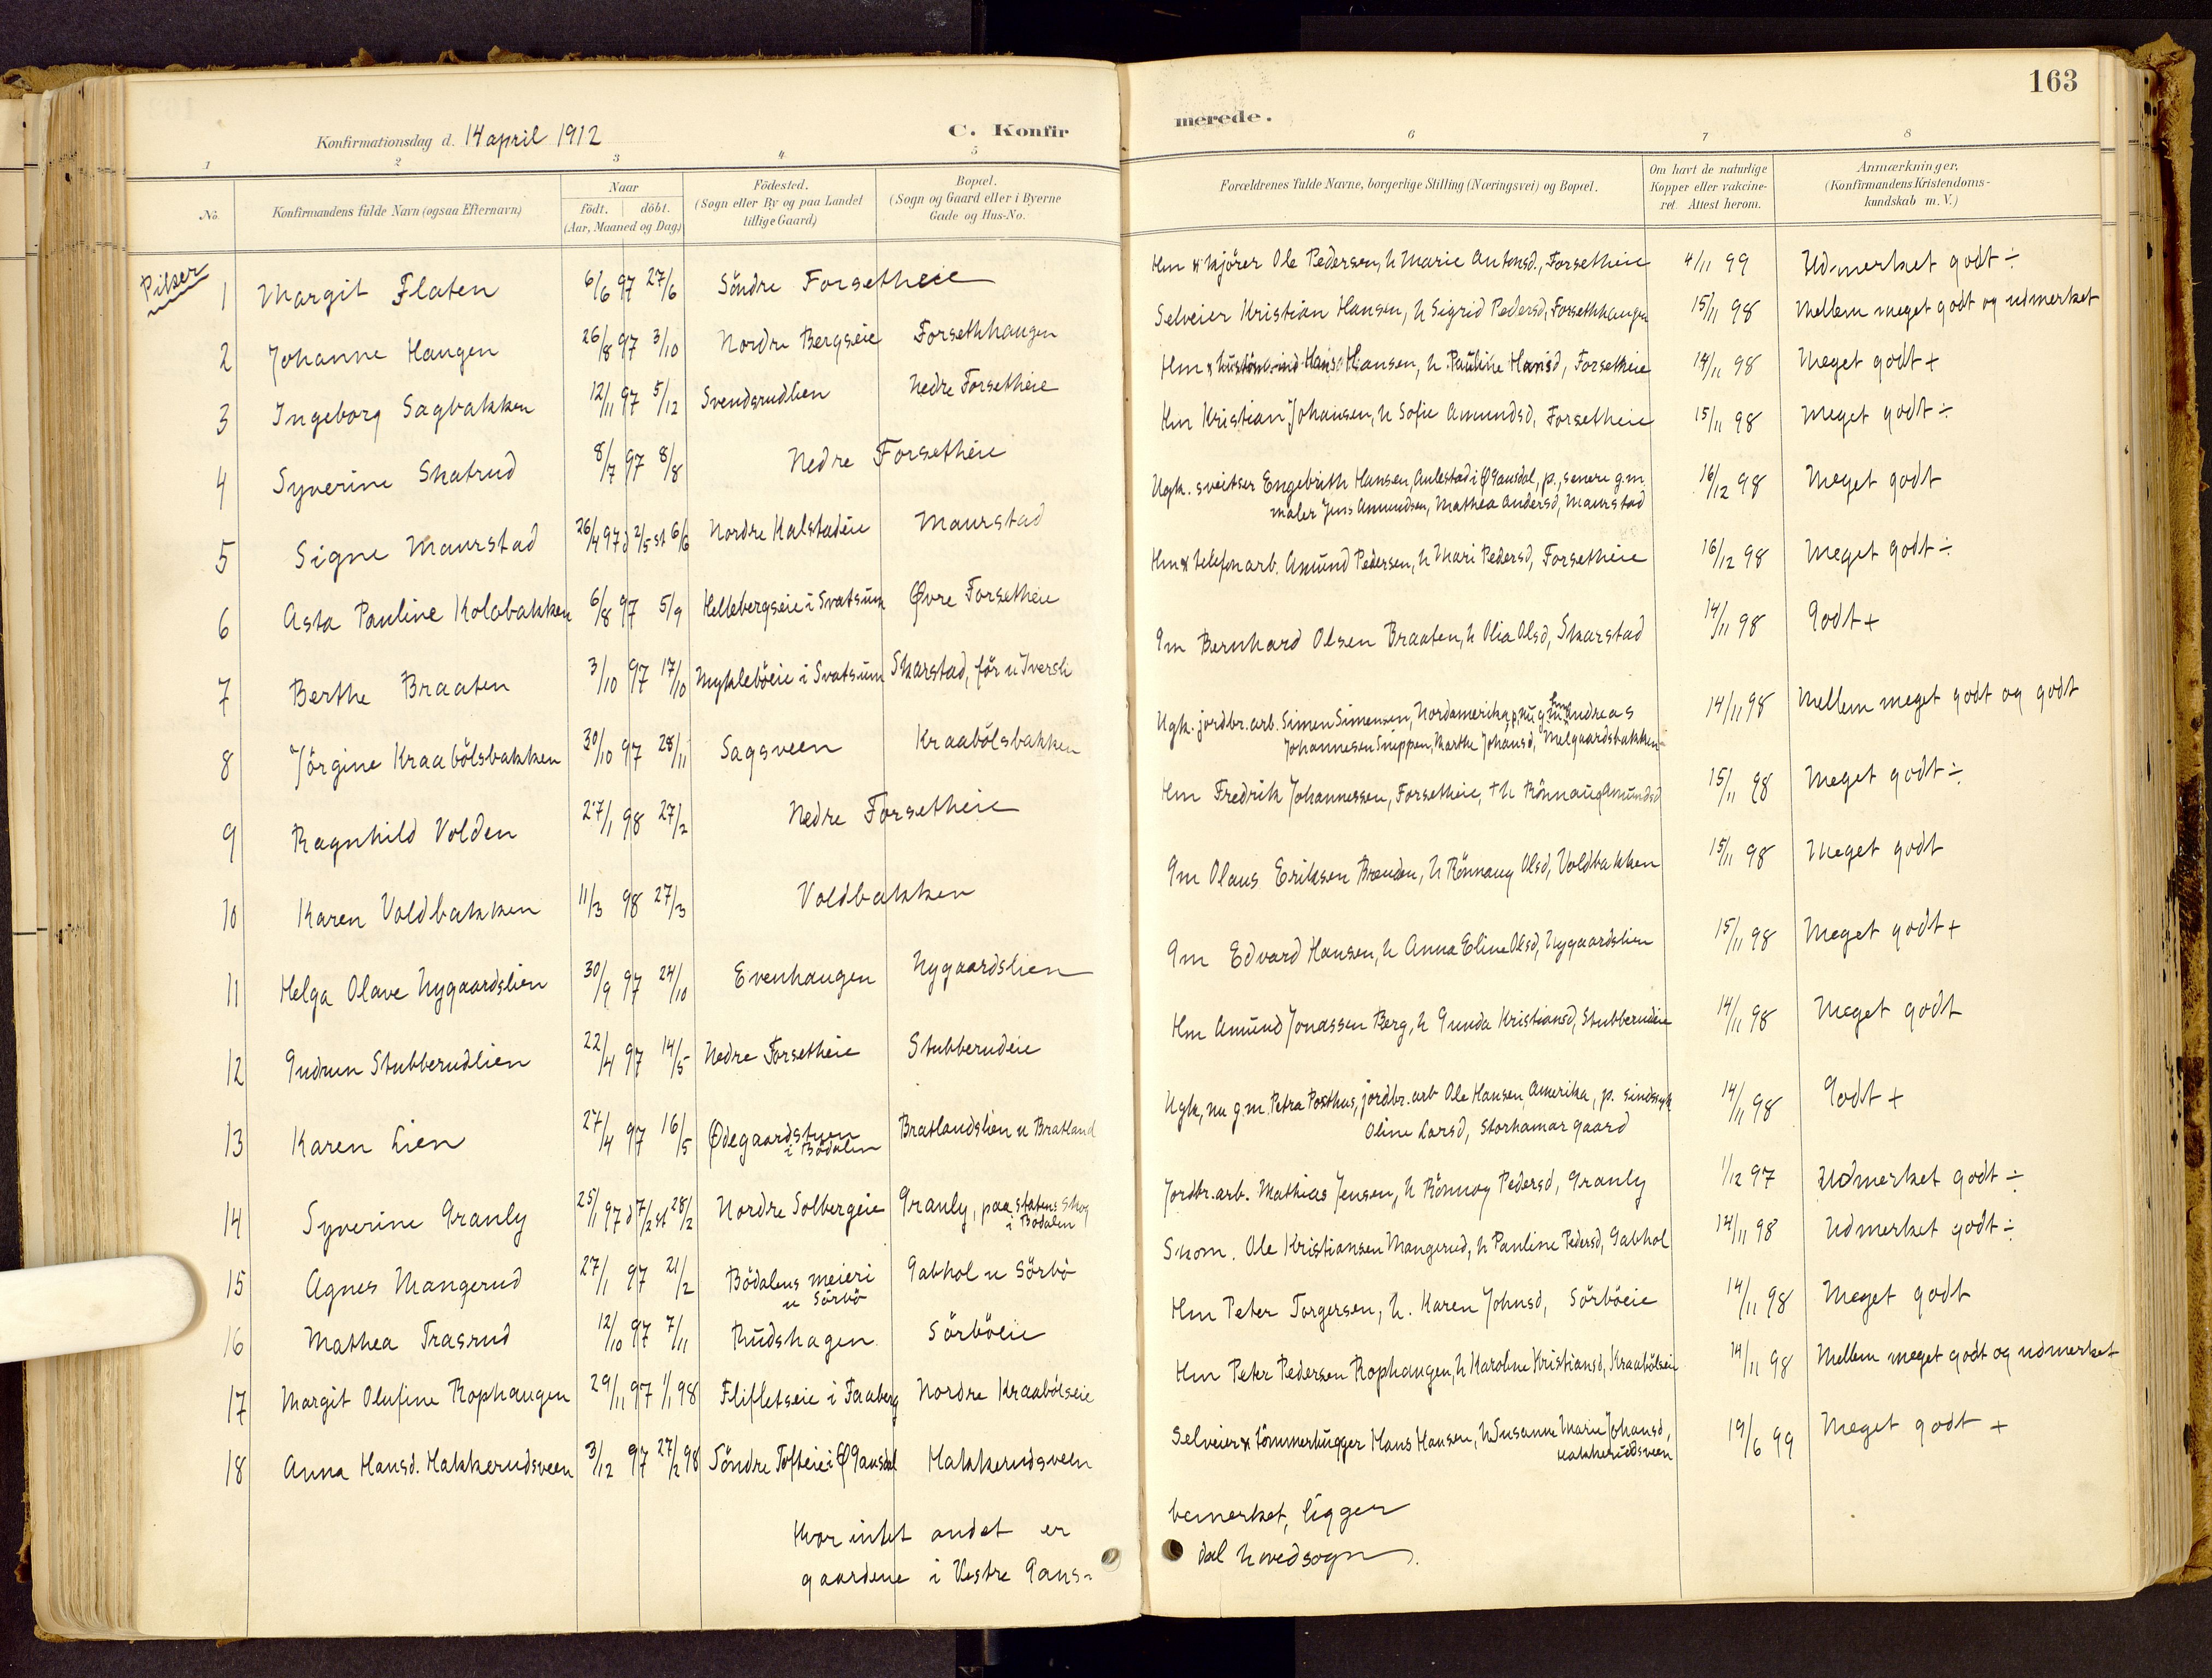 163
Konfirmationsdag d. 14 april 1912
C. Konfir
merede.
1 2 3 4 5 6 7 8
No. Konfirmandens fulde Navn (ogsaa Efternavn) Naar født. døbt. (Aar, Maaned og Dag) Fødested. (Sogn eller By og paa Landet tillige Gaard) Bopæl. (Sogn og Gaard eller i Byerne Gade og Hus-No. Forældrenes fulde Navne, borgerlige Stilling (Næringsvei) og Bopæl. Om havt de naturlige Kopper eller vakcineret. Attest herom. Anmærkninger, (Konfirmandens Kristendomskundskab m. V.)
Piker
1 Margit Flaten 6/6 97 27/6 Söndre Forsetheie Hm & kjörer Ole Pedersen, h Marie Antonsd., Forsetheie 4/11 99 Udmerket godt ÷
2 Johanne Haugen 26/8 97 3/10 Nordre Bergseie Forsethhaugen Selveier Kristian Hansen, h Sigrid Pedersd, Forsethhaugen 15/11 98 Mellem meget godt og udmerket
3 Ingeborg Sagbakken 12/11 97 5/12 Svendsrudlien Nedre Forsetheie Hm & Hans Hansen, h Pauline Hansd, Forsetheie 14/11 98 Meget godt +
4 Syverine Skatrud 8/7 97 8/8 Nedre Forsetheie Hm Kristian Johansen, h Sofie Amundsd, Forsetheie 15/11 98 Meget godt ÷
5 Signe Maurstad 26/4 97 d 2/5 st 6/6 Nordre Kalstadeie Maurstad Ugk. sveitser Engebrith Hansen, Aulestad i Ø Gausdal, p., senere g.m.
maler Jens Amundsen, Mathea Andersd, Maurstad 16/12 98 Meget godt
6 Asta Pauline Kolobakken 6/8 97 5/9 Hellebergseie i Svatsum Øvre Forsetheie Hm & telefonarb. Amund Pedersen, h Mari Pedersd, Forsetheie 16/12 98 Meget godt ÷
7 Berthe Braaten 3/10 97 17/10 Mykleböeie i Svatsum Skarstad, för u Iversli Gm Bernhard Olsen Braaten, h Olia Olsd, Skarstad 14/11 98 Godt +
8 Jörgine Kraabölsbakken 30/10 97 28/11 Sagsveen Kraabölsbakken Ugk. jordbr. arb. Simen Simensen, Nordamerika, p, nu g m Andreas
Johannesen Snippen, Marthe Johansd, Melgaardsbakken 14/11 98 Mellem meget godt og godt
9 Ragnhild Volden 27/1 98 27/2 Nedre Forsetheie Hm Fredrik Johannessen, Forsetheie, + h Rönnaug Amundsd 15/11 98 Meget godt ÷
10 Karen Voldbakken 11/3 98 27/3 Voldbakken Gm Olaus Eriksen Brænden, h Rönnaug Olsd, Voldbakken 15/11 98 Meget godt
11 Helga Olave Nygaardslien 30/9 97 24/10 Evenhaugen Nygaardslien Gm Edvard Hansen, h Anna Eline Olsd, Nygaardslien 15/11 98 Meget godt +
12 Gudrun Stubberudlien 22/4 97 14/5 Nedre Forsetheie Stubberudeie Hm Amund Jonassen Berg, h Gunda Kristiansd, Stubberudeie 14/11 98 Meget godt
13 Karen Lien 27/4 97 16/5 Ødegaardstuen i Bödalen Bratlandslien u Bratland Ugk, nu g.m. Petra Posthus, jordbr. arb Ole Hansen, Amerika, p. sindssyk
Oline Larsd, Storhamar gaard 14/11 98 Godt +
14 Syverine Granly 25/1 97 d 7/2 st 28/2 Nordre Solbergeie Granly, paa Statens Skog i Bödalen Jordbr. arb. Mathias Jensen, h Rönnog Pedersd, Granly 1/12 97 Udmerket godt ÷
15 Agnes Mangerud 27/1 97 21/2 Bödalens meieri u Sörbö Gabhol u Sörbö Skom. Ole Kristiansen Mangerud, h Pauline Pedersd, Gabhol 14/11 98 Udmerket godt ÷
16 Mathea Trasrud 12/10 97 7/11 Rudshagen Sörböeie Hm Peter Torgersen, h. Karen Johnsd, Sörböeie 14/11 98 Meget godt
17 Margit Olufine Rophaugen 29/11 97 1/1 98 Flifletseie i Faaberg Nordre Kraabölseie Hm Peter Pedersen Rophaugen, h Karoline Kristiansd, Kraabölseie 14/11 98 Mellem meget godt og udmerket
18 Anna Hansd. Hakkerudsveen 3/12 97 27/2 98 Söndre Tofteie i Ø Gausdal Hakkerudsveen Selveier & tömmerhugger Hans Hansen, h Susanne Marie Johansd,
Hakkerudsveen 19/6 99 Meget godt +
Hvor intet andet er bemerket, ligger
gaardene i Vestre Gausdal hovedsogn.